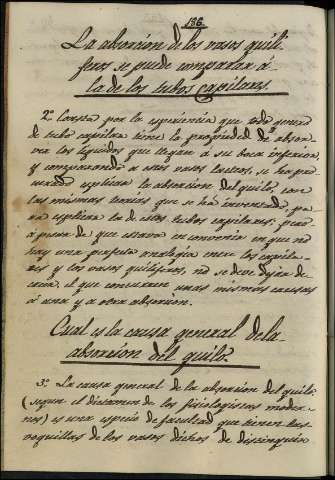 186.
La absorcion de los vasos quili-
feros se puede comparar á
la de los tubos capilares.
2º Consta por la esperiencia que todo genero
de tubo capilar tiene la propiedad de absor-
ver los liquidos que llegan á su boca inferior,
y comparando á estos vasos lacteos, se ha pro-
curado esplicar la absorcion del quilo, con
las mismas teorias que se han inventado pa-
ra esplicar la de estos tubos capilares; pero
á pesar de que estava en convenir en que no
hay una perfecta analogia entre los capila-
res y los vasos quiliferos, no se deve dejar de
creer, el que concurren unas mismas causas
á una y a otra absorcion.
Cual es la causa general de la
absorcion del quilo.
3º La causa general de la absorcion del quilo
(segun el dictamen de los fisiologistas moder-
nos) es una especie de facultad que tienen las
voquillas de los vasos dichos de distinguir